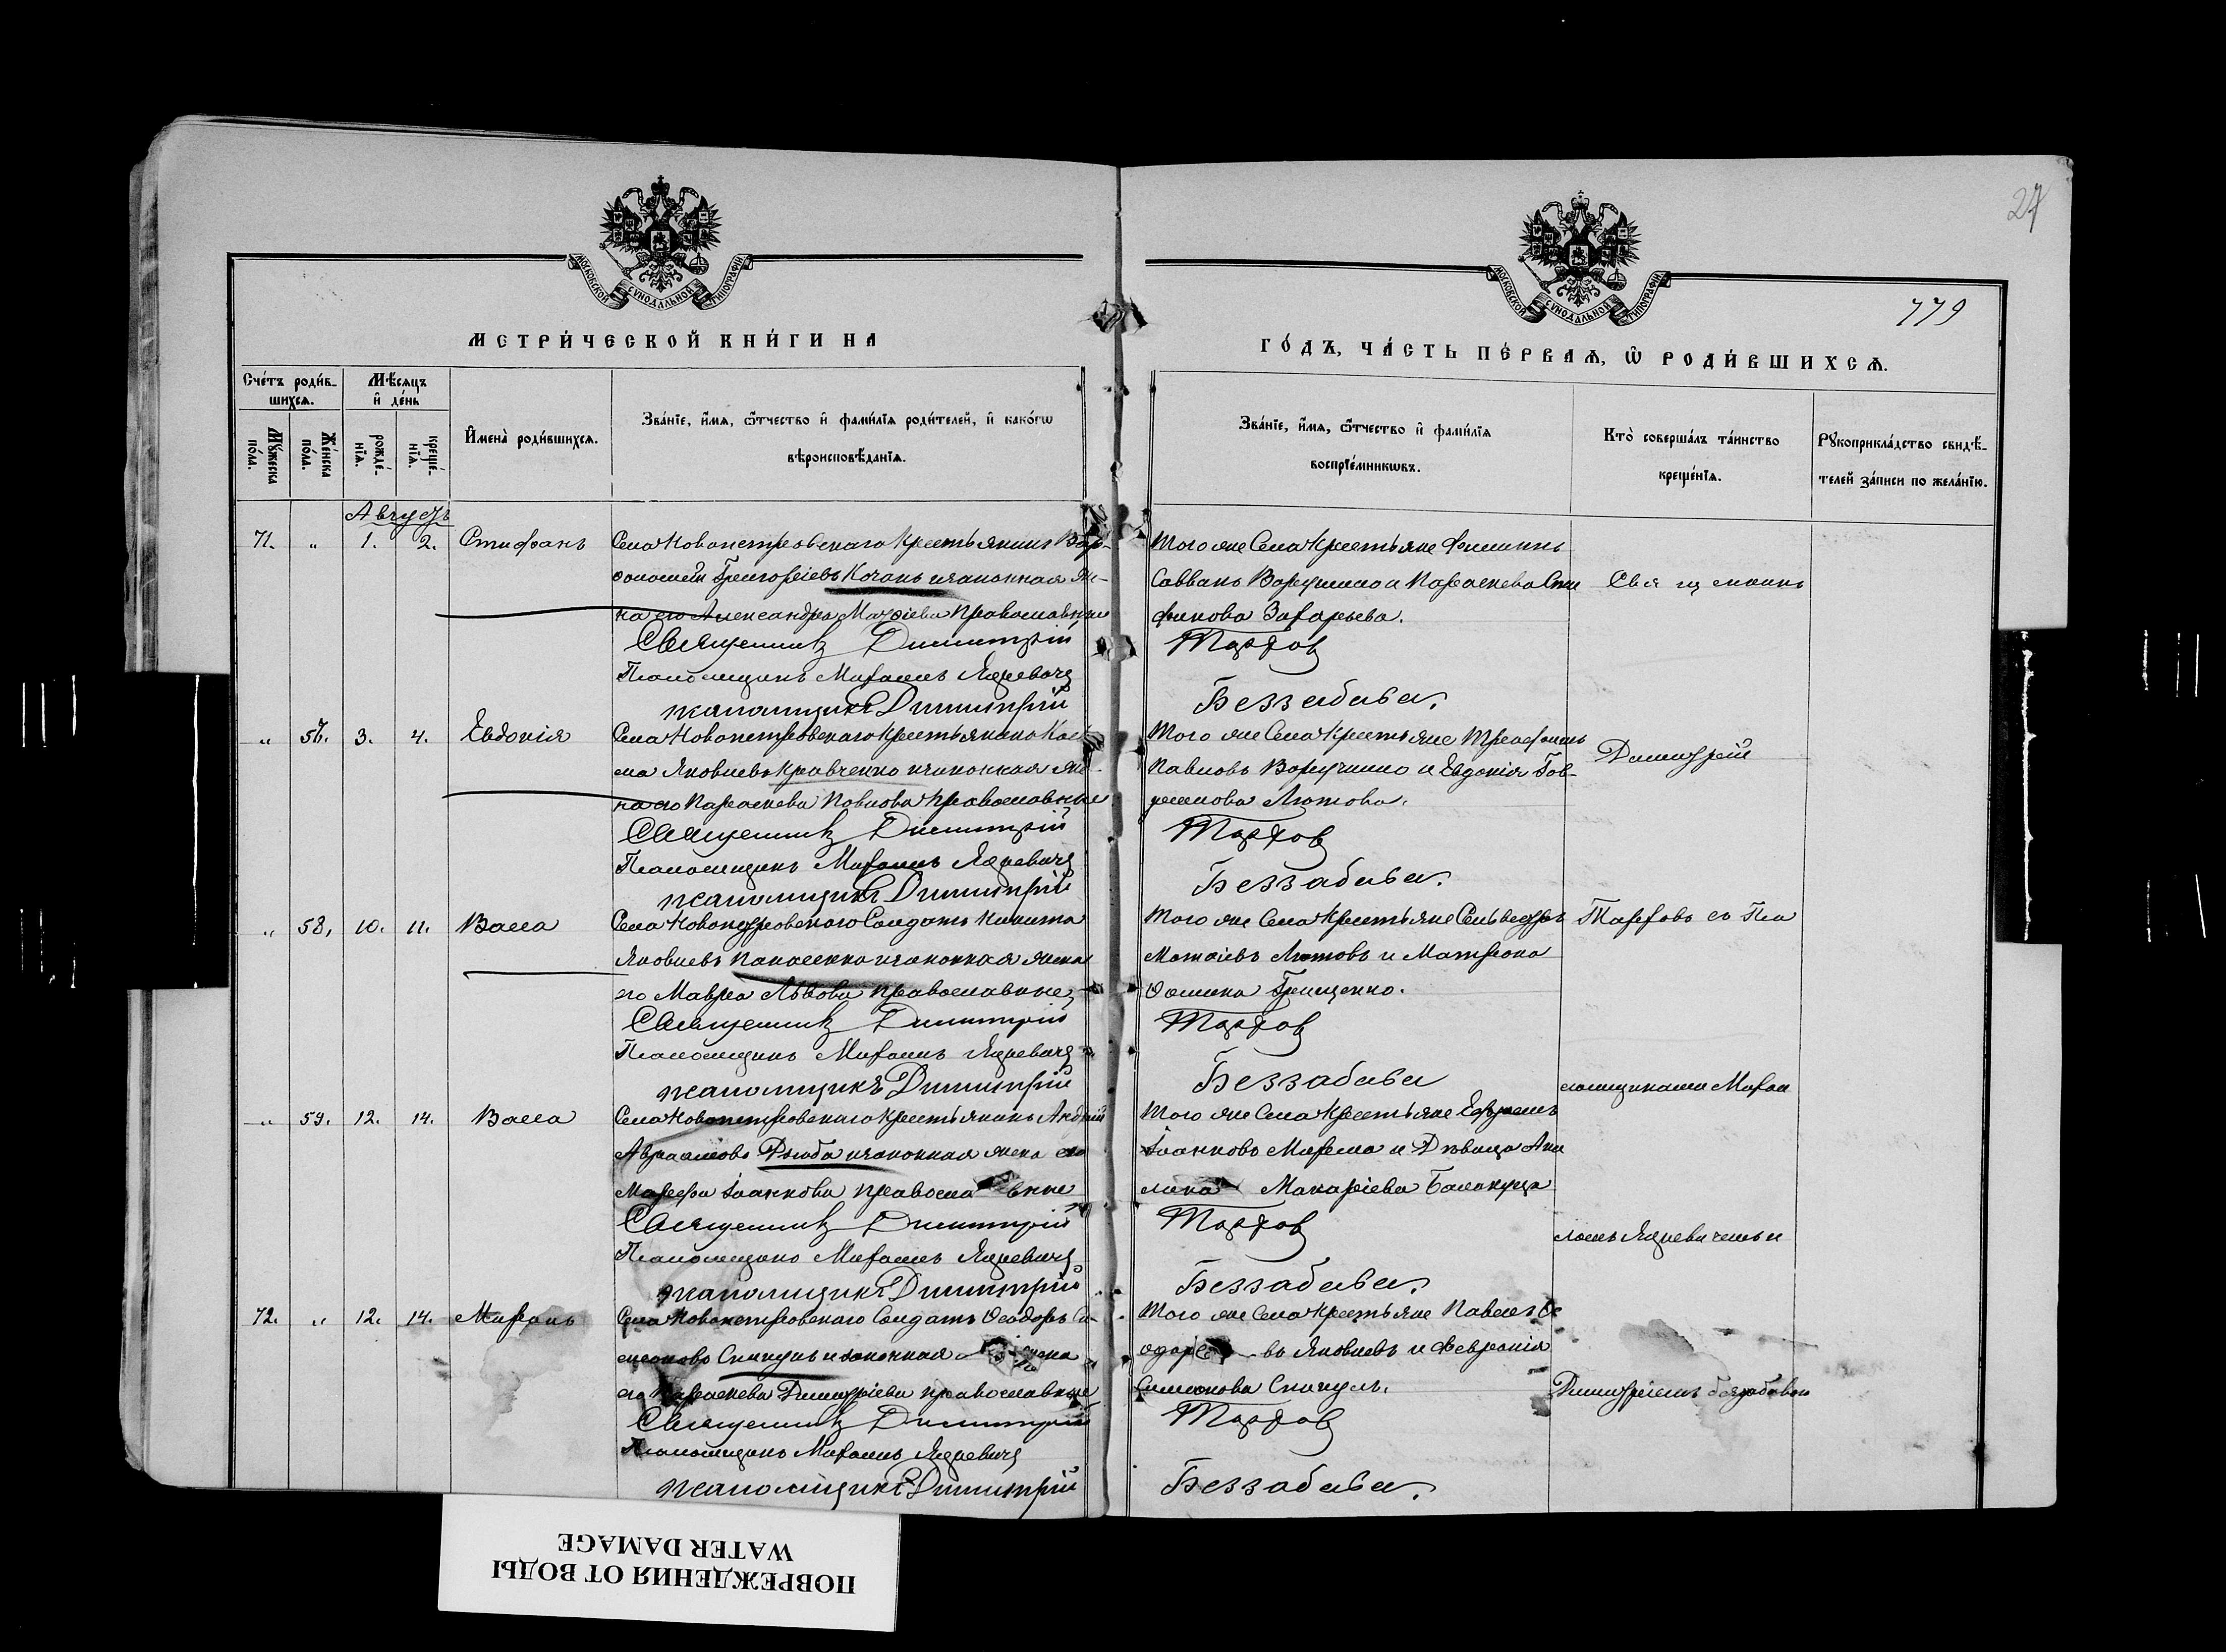 27
779
МОСКОВСКОЙ СѴНОДАЛЬНОЙ ТИПОГРАФІИ
МОСКОВСКОЙ СѴНОДАЛЬНОЙ ТИПОГРАФІИ
МЕТРИ́ЧЕСКОЙ КНИ́ГИ НА
ГО́ДЪ, ЧА́СТЬ ПЕ́РВАѦ, Ѡ҆ РОДИ́ВШИХСѦ.
Сче́тъ роди́в-
шихсѧ.
Мѣ́сяцъ
и҆ де́нь
Мꙋ́жеска
по́ла.
Же́нска
по́ла.
рожде́-
нїѧ.
креще́-
нїѧ.
И҆мена̀ роди́вшихсѧ.
Зва́нїе, и҆́мѧ, ѻ҆́тчество и҆ фами́лїѧ роди́телей, и҆ како́гѡ
вѣроисповѣ́данїѧ.
Зва́нїе, и҆́мѧ, ѻ҆́тчество и҆ фами́лїѧ
воспрїе́мникѡвъ.
Кто̀ соверша́лъ та́инство
креще́нїѧ.
Рꙋкоприкла́дство свидѣ́-
телей за́писи по жела́нїю.
Августъ
71. „ 1. 2. Стифанъ
Села Новопетровскаго Крестьянинъ Вар-
ѳоломей Григоріевъ Коганъ изаконная Же-
на его Александра Матѳіева Православные
Священникъ Димитрій
Псаломщикъ Михаилъ Яцкевичъ
псаломщикъ Димитрій
Того же Села Крестьяне Филиппъ
Саввинъ Воручино и Параскева Сте
фанова Захарьева.
Торхов
Беззабава.
Свя щ енникъ
„ 57. 3. 4. Евдокія
Села Новопетровскаго Крестьянинъ Кос-
ма Яковлевъ Кравченко изаконная Же-
на его Параскева Павлова Православные
Священникъ Димитрій
Псаломщикъ Михаилъ Яцкевичъ
псаломщикъ Димитрій
Того же Села Крестьяне Трофимъ
Павловъ Воручино и Евдокія Гав-
рилова Лютова.
Торхов
Беззабава.
Димитрій
„ 58. 10. 11. Васса
Села Новопетровскаго Солдатъ Никита
Яковлевъ Панасенко изаконная жена
его Мавра Львова православные
Священникъ Димитрій
Псаломщикъ Михаилъ Яцкевичъ
псаломщикъ Димитрій
Того же Села Крестьяне Сельвестръ
Матѳіевъ Лютовъ и Матрона
Ѳомина Грищенко.
Торхов
Беззабава
Торховъ съ Пса
ломщиками Михаи
„ 59. 12. 14. Васса
Села Новопетровскаго Крестьянинъ Андрей
Авраамовъ Дзюба изаконная жена его
Марфа Іоаннова православные
Священникъ Димитрій
Псаломщикъ Михаилъ Яцкевичъ
псаломщикъ Димитрій
Того же Села Крестьяне Ефремъ
Іоанновъ и Дѣвица Аки
лина Макаріева Балакуца
Торхов
Беззабава.
ломъ Яцкевичемъ и
72. „ 12. 14. Миронъ
Села Новопетровскаго Солдатъ Ѳеодоръ Си-
меоновъ Скикунъ изаконная жена
его Параскева Димитріева православные
Священникъ Димитрій
Псаломщикъ Михаилъ Яцкевичъ
псаломщикъ Димитрій
Того же Села Крестьяне Павелъ Ѳе
одоровъ Яковлевъ и Февронія
Симеонова Скикунъ.
Торхов
Беззабава.
Димитріемъ Беззабавою
ПОВРЕЖДЕНИЯ ОТ ВОДЫ
WATER DAMAGE